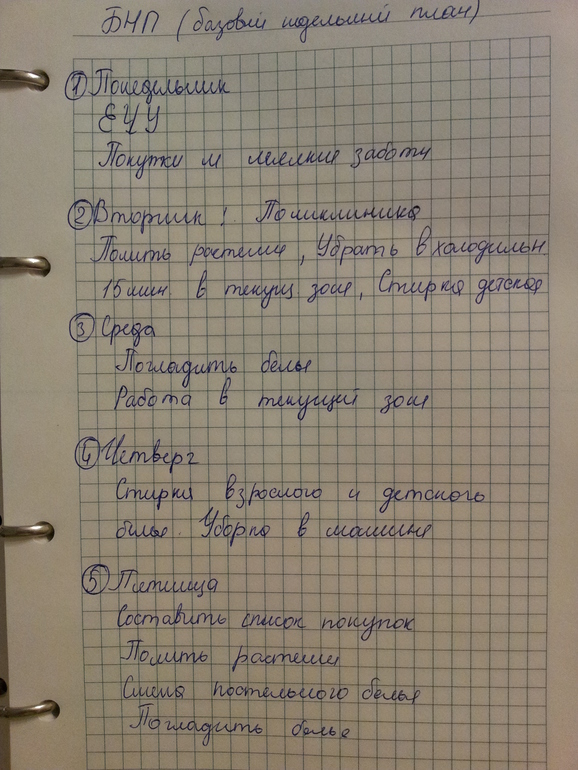 БНП (базовый недельный план)
① Понедельник
ЕЦУ
Покупки и мелкие заботы
② Вторник! Поликлиника
Полить растения, Убрать в холодильн.
15 мин. в текущ. зоне, Стирка детская
③ Среда
Погладить белье
Работа в текущей зоне
④ Четверг
Стирка взрослого и детского
белья. Уборка в машине
⑤ Пятница
Составить список покупок
Полить растения
Смена постельного белья
Погладить белье